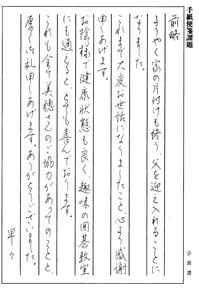 手紙便箋課題
前略
ようやく家の片付けも終り、父を迎え入れることに
なりました。
これまで大変お世話になりましたこと心より感謝
申しあげます。
お陰様で健康状態も良く、趣味の囲碁教室
にも通えるととても喜んでおります。
これも全て美穂さんのご協力があってのことと、
厚くお礼申しあげます。ありがとうございました。
早々